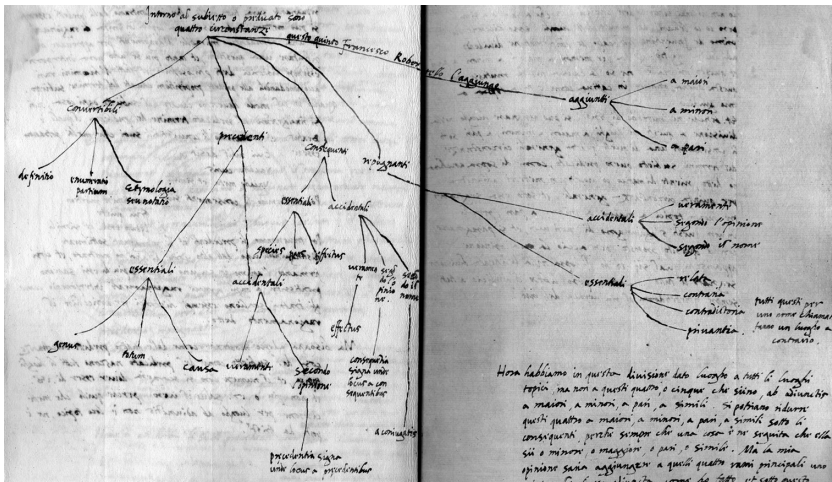 Intorno al subietto o predicato sono
quattro circonstanze
questo quinto Francesco Robortello l'aggiunge
aggiunti
a maiori
a minori
a pari
convertibili
definitio
enumeratio
partium
etymologia
seu notatio
precedenti
essentiali
genus
totum
causa
accidentali
veramenti
secondo
l'opinione
precedentia signa
unde locus a precedentibus
consequenti
essentiali
species
pars
effectus
accidentali
effectus
consequentia
signa unde
locus a con
sequentibus
secon
do il
nome
a coniugatis
repugnanti
accidentali
veramenti
segondo l'opinione
segondo il nome
essentiali
relata
contraria
contradictoria
privantia
tutti questi per
uno nome chiama
luogho a
contrario.
Hora habbiamo in questa divisione dato luogho a tutti li luoghi
topici, ma non a questi quattro, o cinque che siino, ab adiunctis
a maiori, a minori, a pari, a simili. Si potriano ridurre
questi quattro a maiori, a minori, a pari, a simili sotto li
consequenti, perche sempre che una cosa è ne seguita che ella
sii o minore, o maggiore, o pari, o simile. Ma la mia
opinione saria aggiungere a quelli quattro rami principali uno